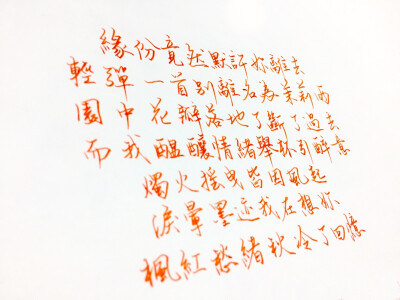 緣份竟然默許妳離去
輕彈一首別離名為茉莉雨
園中花瓣落地了斷了過去
而我醖釀情緒舉杯引醉意
燭火摇曳皆因風起
淚暈墨迹我在想妳
楓紅愁緒秋冷了回憶